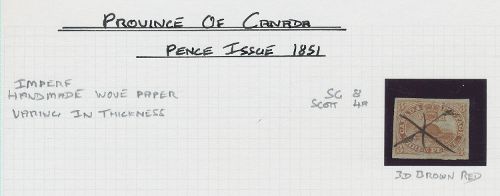 PROVINCE OF CANADA
PENCE ISSUE 1851
IMPERF
HANDMADE WOVE PAPER
VARING IN THICKNESS
SG 8
SCOTT 4A
3D BROWN RED